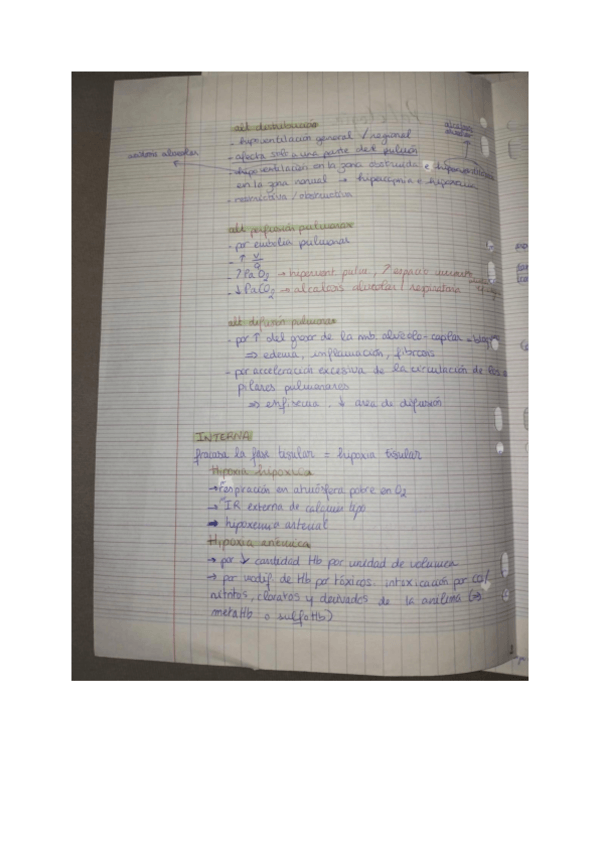 alt distribución
- hipoventilación general / regional
- afecta solo a una parte del pulmón
alcalosis alveolar
acidosis alveolar
- hipoventilación en la zona obstruida e hiperventilación
en la zona normal → hipercapnia e hipoxemia
- restrictiva / obstructiva
alt perfusión pulmonar
- por embolia pulmonar
- ↑ V/Q
- ↑ PaO2 → hipervent pulm, ↑ espacio muerto
- ↓ PaCO2 → alcalosis alveolar / respiratoria
alt difusión pulmonar
- por ↑ del grosor de la mb. alveolo-capilar
⇒ edema, inflamación, fibrosis
- por aceleración excesiva de la circulación de los
pilares pulmonares
⇒ enfisema. ↓ area de difusión
INTERNA
fracasa la fase tisular = hipoxia tisular
Hipoxia hipoxica
→ respiración en atmósfera pobre en O2
→ IR externa de cualquier tipo
➡ hipoxemia arterial
Hipoxia anémica
→ por ↓ cantidad Hb por unidad de volumen
→ por modif. de Hb por tóxicos: intoxicación por CO/
nitritos, cloratos y derivados de la anilina (⇒
metaHb o sulfoHb)